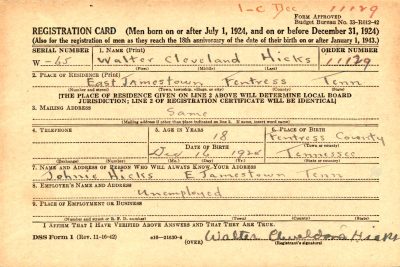 1-C Dec 11129
FORM APPROVED
Budget Bureau No. 33-R012-42
REGISTRATION CARD (Men born on or after July 1, 1924, and on or before December 31, 1924)
(Also for the registration of men as they reach the 18th anniversary of the date of their birth on or after January 1, 1943.)
SERIAL NUMBER 1. NAME (Print) ORDER NUMBER
W-65 Walter Cleveland Hicks 11129
(First) (Middle) (Last)
2. PLACE OF RESIDENCE (Print)
East Jamestown Fentress Tenn
(Number and street) (Town, township, village, or city) (County) (State)
[THE PLACE OF RESIDENCE GIVEN ON LINE 2 ABOVE WILL DETERMINE LOCAL BOARD
JURISDICTION; LINE 2 OF REGISTRATION CERTIFICATE WILL BE IDENTICAL]
3. MAILING ADDRESS
Same
[Mailing address if other than place indicated on line 2. If same, insert word same]
4. TELEPHONE 5. AGE IN YEARS 6. PLACE OF BIRTH
18 Fentress County
DATE OF BIRTH (Town or county)
Dec 16 1924 Tennessee
(Exchange) (Number) (Mo.) (Day) (Yr.) (State or country)
7. NAME AND ADDRESS OF PERSON WHO WILL ALWAYS KNOW YOUR ADDRESS
Johnie Hicks E Jamestown Tenn
8. EMPLOYER'S NAME AND ADDRESS
Unemployed
9. PLACE OF EMPLOYMENT OR BUSINESS
(Number and street or R. F. D. number) (Town) (County) (State)
I AFFIRM THAT I HAVE VERIFIED ABOVE ANSWERS AND THAT THEY ARE TRUE.
DSS Form 1 (Rev. 11-16-42) (OVER) Walter Hicks
(Registrant's signature)